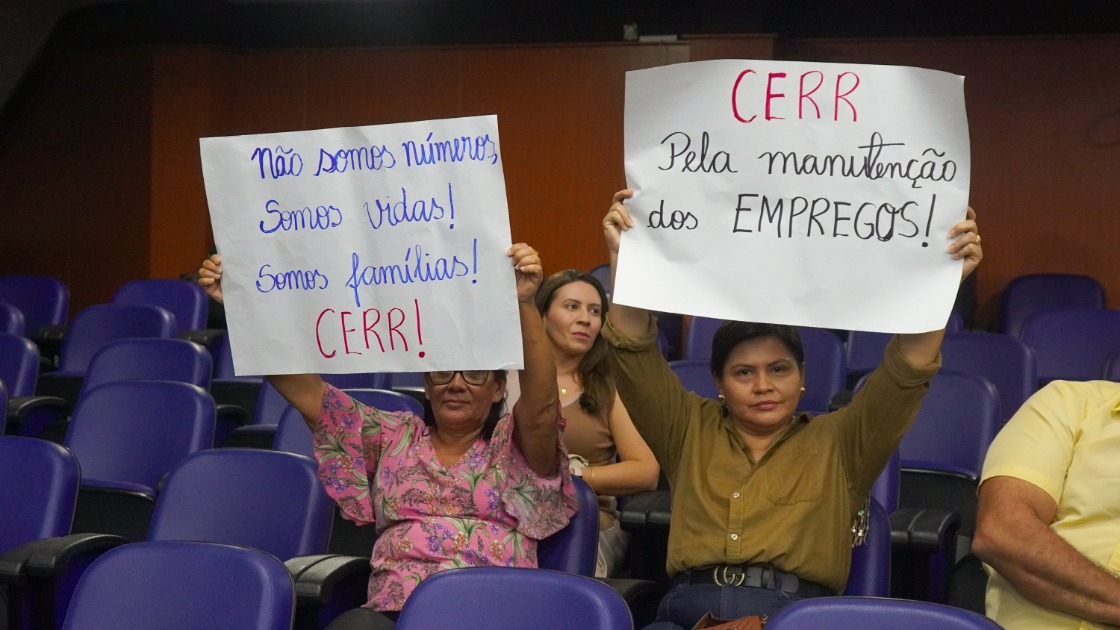 Não somos números,
Somos vidas!
Somos famílias!
CERR!
CERR
Pela manutenção
dos EMPREGOS!